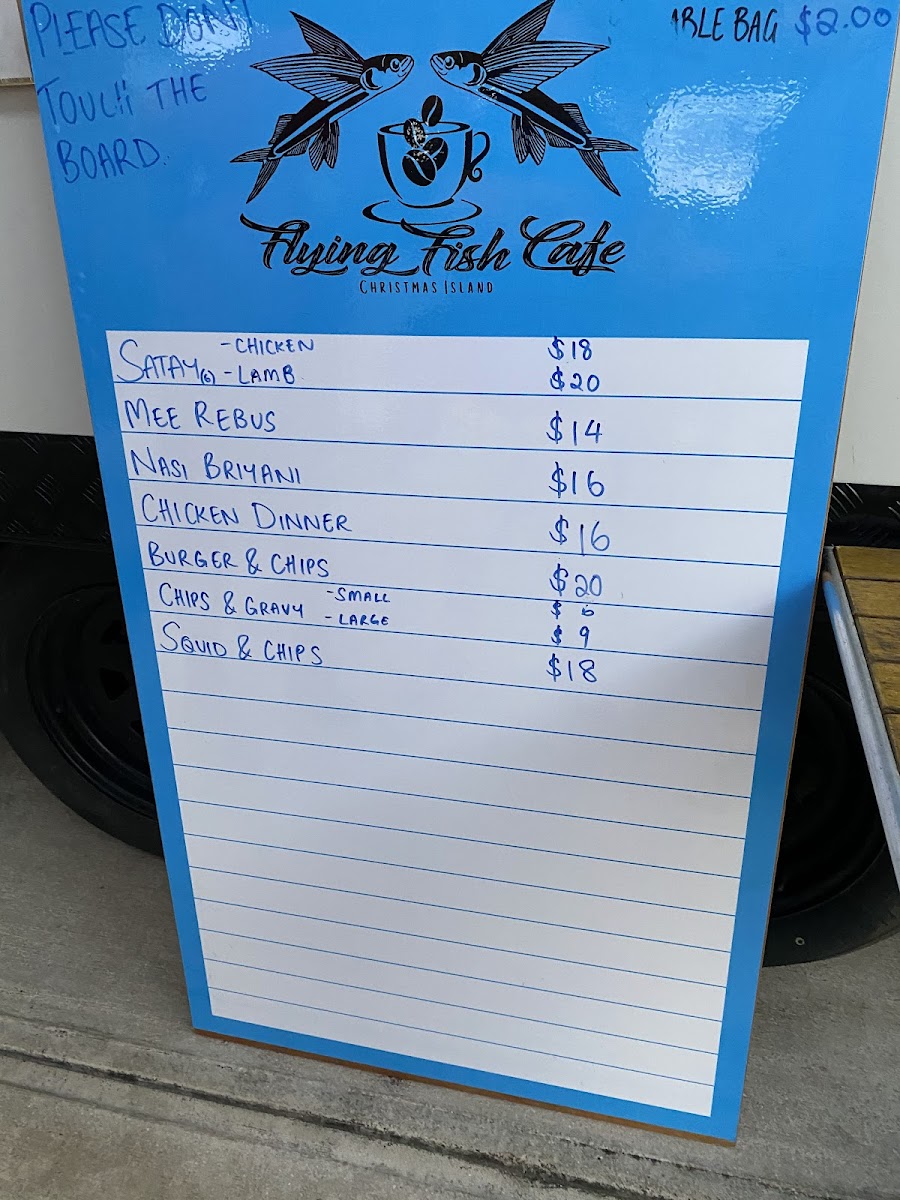 PLEASE DON'T
TOUCH THE
BOARD.
BAG $2.00
Flying Fish Cafe
CHRISTMAS ISLAND
SATAY(6) - CHICKEN $18
- LAMB $20
MEE REBUS $14
NASI BRIYANI $16
CHICKEN DINNER $16
BURGER & CHIPS $20
CHIPS & GRAVY - SMALL $6
- LARGE $9
SQUID & CHIPS $18